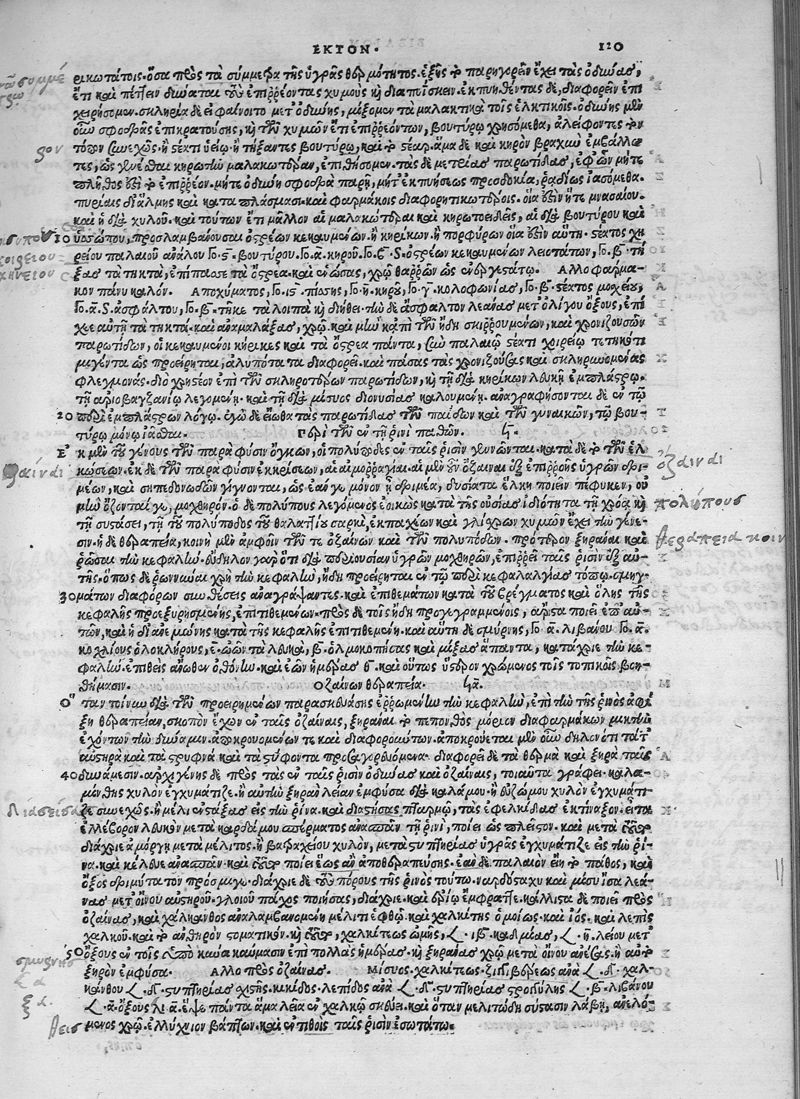 ΕΚΤΟΝ. 120
ρικωτάτοις. ὅσα πρὸς τὰ σύμμετρα τῆς ὑγρᾶς θερμότητος. ἑξῆς τὸ παρηγορεῖν ἔχει τὰς ὀδύνας,
ἔτι καὶ πέττειν δύναται τοὺς ἐπιρρέοντας χυμοὺς ἢ διαπύσκειν. ἐκπυηθέντας δὲ, διαφορεῖν ἐπι
χειρήσομεν. σκληρία δὲ εἰ φαίνοιτο μετ' ὀδύνης, μίξομεν τὰ μαλακτικὰ τοῖς ἑλκτικοῖς. ὀδύνης μὲν
οὖν σφοδρᾶς ἐπικρατούσης, ἢ τῶν χυμῶν ἔτι ἐπιρρεόντων, βουτύρῳ χρησόμεθα, ἀλείφοντες τὸν
τόπον συνεχῶς. ἢ στέατι ὑείῳ. ἢ τήξαντες βουτύρῳ, καὶ τὸ στέαρ. ἅμα δὲ καὶ κηρὸν βραχὺν ἐμβάλλον
τες, ὡς γενέσθαι κηρωτὴν μαλακωτέραν, ἐπιθήσομεν. τὰς δὲ μετρίας παρωτίδας, ἐφ' ὧν μήτε
πλῆθός ἐστι τὸ ἐπιρρέον. μήτε ὀδύνη σφοδρὰ παρῇ, μήτ' ἐκπυήσεως προσδοκία, ῥᾳδίως ἰασόμεθα.
πυρίαις δι' ἅλμης καὶ καταπλάσμασι καὶ φαρμάκοις διαφορητικωτέροις. οἷα ἐστὶν ἥ τε μνασαίου.
καὶ ἡ διὰ χυλοῦ. καὶ τούτων ἔτι μᾶλλον αἱ μαλακώτεραι καὶ κηρωτοειδεῖς, αἱ διὰ βουτύρου καὶ
10 ὑσσώπου, προσλαμβάνουσαι ὀστρέων κεκαυμένων. ἢ κηρύκων. ἢ πορφύρων οἷα ἐστὶν αὕτη. στέατος χοι
ρείου παλαιοῦ ἀνάλου γο. ϛ. βουτύρου. γο. α. κηροῦ. γο. ϛ. S. ὀστρέων κεκαυμένων λειοτάτων, γο. β. τή
ξας τὰ τηκτὰ, καὶ ἐπίπασσε τὰ ὄστρεα. καὶ ἑνώσας, χρῶ θαρρῶν ὡς ἐνεργεστάτῳ. Ἄλλο φάρμα-
κον πάνυ καλόν. Ἀποχύματος, γο. ιϛ. πίσσης, γο. η. κηροῦ, γο. γ. κολοφωνίας, γο. β. στέατος μοσχείου,
γο. α. S. ἀσφάλτου, γο. β. τῆκε τὰ λοιπὰ ἢ διήθει. τὴν δὲ ἄσφαλτον λεάνας μετ' ὀλίγου ὄξους, ἐπί
χεε αὐτῇ τὰ τηκτὰ. καὶ ἀναμαλάξας, χρῶ. καὶ μὴν κἀπὶ τῶν ἤδη σκιρρουμένων, καὶ χρονιζουσῶν
παρωτίδων, οἱ κεκαυμένοι κήρυκες καὶ τὰ ὄστρεα πάντα, σὺν παλαιῷ στέατι χοιρείῳ τετηκότι
μιγέντα ὡς προείρηται, ἀλυπότατα διαφορεῖ. καὶ πάσας τὰς χρονιζούσας καὶ σκληρυνομένας
φλεγμονάς. διὸ χρηστέον ἐπὶ τῶν σκληροτέρων παρωτίδων, ἢ τῇ διὰ κηρύκων λευκῇ ἐμπλάστρῳ.
τῇ ἀριοβαρζανίῳ λεγομένῃ. καὶ τῇ μίσυος διονυσίας καλουμένῃ. ἀναγραφήσονται δὲ ἐν τῷ
20 περὶ ἐμπλάστρων λόγῳ. ἐγὼ δὲ εἴωθα τὰς παρωτίδας τῶν παίδων καὶ τῶν γυναικῶν, τῷ βου-
τύρῳ μόνῳ ἰᾶσθαι. Περὶ τῶν ἐν τῇ ῥινὶ παθῶν.
Εκ μὲν τοῦ γένους τῶν παρὰ φύσιν ὄγκων, οἱ πολύποδες ἐν ταῖς ῥισὶν γίνονται. κατὰ δὲ τὸ τῶν ἑλ
κώσεων. ἐκ δὲ τῶν παρὰ φύσιν ἐκκρίσεων, αἱ αἱμορραγίαι. αἱ μὲν οὖν ὄζαιναι ἐξ ἐπιρροῆς ὑγρῶν δρι-
μέων, καὶ σηπεδονωδῶν γίγνονται, ὡς ἐὰν γε μόνον ᾖ δριμέα, δυσίατα ἕλκη ποιεῖν πέφυκεν, οὐ
μὴν ὀζονταί γε, μοχθηρόν. ὁ δὲ πολύπους λεγόμενος ἐοικὼς κατὰ τῆς οὐσίας ἰδιότητα τῇ χρόᾳ καὶ
τῇ συστάσει, τῇ τοῦ πολύποδος τοῦ θαλαττίου σαρκί, ἐκ παχέων καὶ γλίσχρων χυμῶν ἔχει τὴν γένε-
σιν. ἡ δὲ θεραπεία, κοινὴ μὲν ἀμφοῖν τῶν τε ὀζαινῶν καὶ τῶν πολυπόδων. πρότερον ξηρᾶναι καὶ
ῥῶσαι τὴν κεφαλήν. εὔδηλον γὰρ ὅτι διὰ περιουσίαν ὑγρῶν μοχθηρῶν, ἐπιρρεῖ ταῖς ῥισὶν ἐξ αὐ-
τῆς. ὅπως δὲ ῥώννυσθαι χρὴ τὴν κεφαλήν, ἤδη προείρηται ἐν τῷ περὶ κεφαλαλγίας τόπῳ. σμηγ-
30 μάτων διαφόρων συνθέσεις ἀναγράψαντες. καὶ ἐπιθεμάτων κατὰ τοῦ βρέγματος καὶ ὅλης τῆς
κεφαλῆς προεξυρησμένης, ἐπιτιθεμένων. πρὸς δὲ τοῖς ἤδη προγεγραμμένοις, ἄριστα ποιεῖ ἐπ' αὐ-
τῶν, καὶ ἡ δι' ἀνεμώνης κατὰ τῆς κεφαλῆς ἐπιτιθεμένη. καὶ αὕτη δὲ σμύρνης, γο. α. λιβάνου γο. α.
κοχλίους ὁλοκλήρους, ε. ᾠῶν τὰ λευκά, β. ὁλμοκοπήσας καὶ μίξας ἅπαντα, κατάχριε τὴν κε-
φαλήν. ἐπιθεὶς ἄνωθεν ὀθόνιον. καὶ ἐῶν ἡμέρας ϛ. καὶ οὕτως ὕστερον χρώμενος τοῖς τοπικοῖς βοη-
θήμασιν. Ὀζαινῶν θεραπεία.
Οταν τοίνυν διὰ τῶν προειρημένων παρασκευάσῃς ἐρρωμένην τὴν κεφαλήν, ἐπὶ τὴν τῆς ῥινὸς ἀφί
ξῃ θεραπείαν, σκοπὸν ἔχων ἐν ταῖς ὀζαίναις, ξηρᾶναι τὸ πεπονθὸς μόριον διὰ φαρμάκων μικτὴν
ἐχόντων τὴν δύναμιν. ἀποκρουομένων τε καὶ διαφορούντων. ἀποκρούεται μὲν οὖν δηλονότι τά τ'
αὐστηρὰ καὶ τὰ στρυφνὰ καὶ τὰ στύφοντα προσαγορευόμενα. διαφορεῖ δὲ τὰ θερμὰ καὶ ξηρὰ ταῖς
40 δυνάμεσιν. ἀρχιγένης δὲ πρὸς τὰς ἐν ταῖς ῥισὶν ὀδύνας καὶ ὀζαίνας, τοιαῦτα γράφει. καλα-
μίνθης χυλὸν ἐγχυμάτιζε. ἢ αὐτὴν ξηρὰν λείαν ἐμφύσα διὰ καλάμου. ἢ εὐζώμου χυλὸν ἐγχυμάτι-
ζε συνεχῶς. ἢ μέλι ἐνστάξας εἰς τὴν ῥῖνα. καὶ διαστήσας πταρμῷ, τὰς ἐφελκίδας ἐκτίναξον. εἶτα
ἑλλέβορον λευκὸν μετὰ καρδάμου σπέρματος ἀνάσπαν τῇ ῥινί, ποιεῖ ὡς πλεῖστον. καὶ μετὰ ταῦτα
διάχριε ἀμόργῃ μετὰ μέλιτος. ἢ βατραχείου χυλὸν, μετὰ στυπτηρίας ὑγρᾶς ἐγχυμάτιζε εἰς τὴν ῥῖ-
να. καὶ κέλευε ἀνασπᾶν. καὶ τοῦτο ποίει ἕως ἂν ἀποθεραπεύσῃς. ἐὰν δὲ παλαιὸν ᾖ τὸ πάθος, καὶ
ὄξος δριμύτατον πρόσμιγε. διάχριε δὲ τοὺς πόρους τῆς ῥινὸς τούτῳ. ναρδοστάχυ καὶ μίσυ ἴσα λεά-
νας μετ' οἴνου αὐστηροῦ. γλοιοῦ πάχος ποιήσας, διάχριε. καὶ ἐρίῳ ἔμφραττε. κάλλιστα δὲ ποιεῖ πρὸς
ὀζαίνας, καὶ χάλκανθος ἀναλαμβανομένη μέλιτι ἑφθῷ. καὶ χαλκῖτις ὁμοίως. καὶ ἰός. καὶ λεπὶς
χαλκοῦ. καὶ τὸ ἀνθηρὸν στοματικόν. ἢ τοῦτο, χαλκίτεως ὠμῆς, 𐅻. ιβ. καδμίας, 𐅻. η. λείου μετ'
50 ὄξους ἐν τοῖς ὑπὸ κύνα καύμασιν ἐπὶ πολλὰς ἡμέρας. ἢ ξηράνας χρῶ μετὰ οἴνου ἀνέσας. ἢ αὐτὸ
ξηρὸν ἐμφύσα. Ἄλλο πρὸς ὀζαίνας. Μίσυος. χαλκίτεως. ζιγγιβέρεως ἀνὰ 𐅻. δ. χαλ-
κάνθου 𐅻. δ. στυπτηρίας σχιστῆς. κηκῖδος. λεπίδος ἀνὰ 𐅻. δ. στυπτηρίας στρογγύλης 𐅻. β. λιβάνου
𐅻. α. ὄξους λι. α. ἕψε πάντα ἅμα λεῖα ἐν χαλκῷ σκεύει. καὶ ὅταν μελιτώδη σύστασιν λάβῃ, ἀνελό-
μενος χρῶ. ἐλλύχνιον βάπτων. καὶ ἐντιθεὶς ταῖς ῥισὶν ἐσωτάτω.
ὄζαιναι
πολύπους
θεραπεία κοινὴ